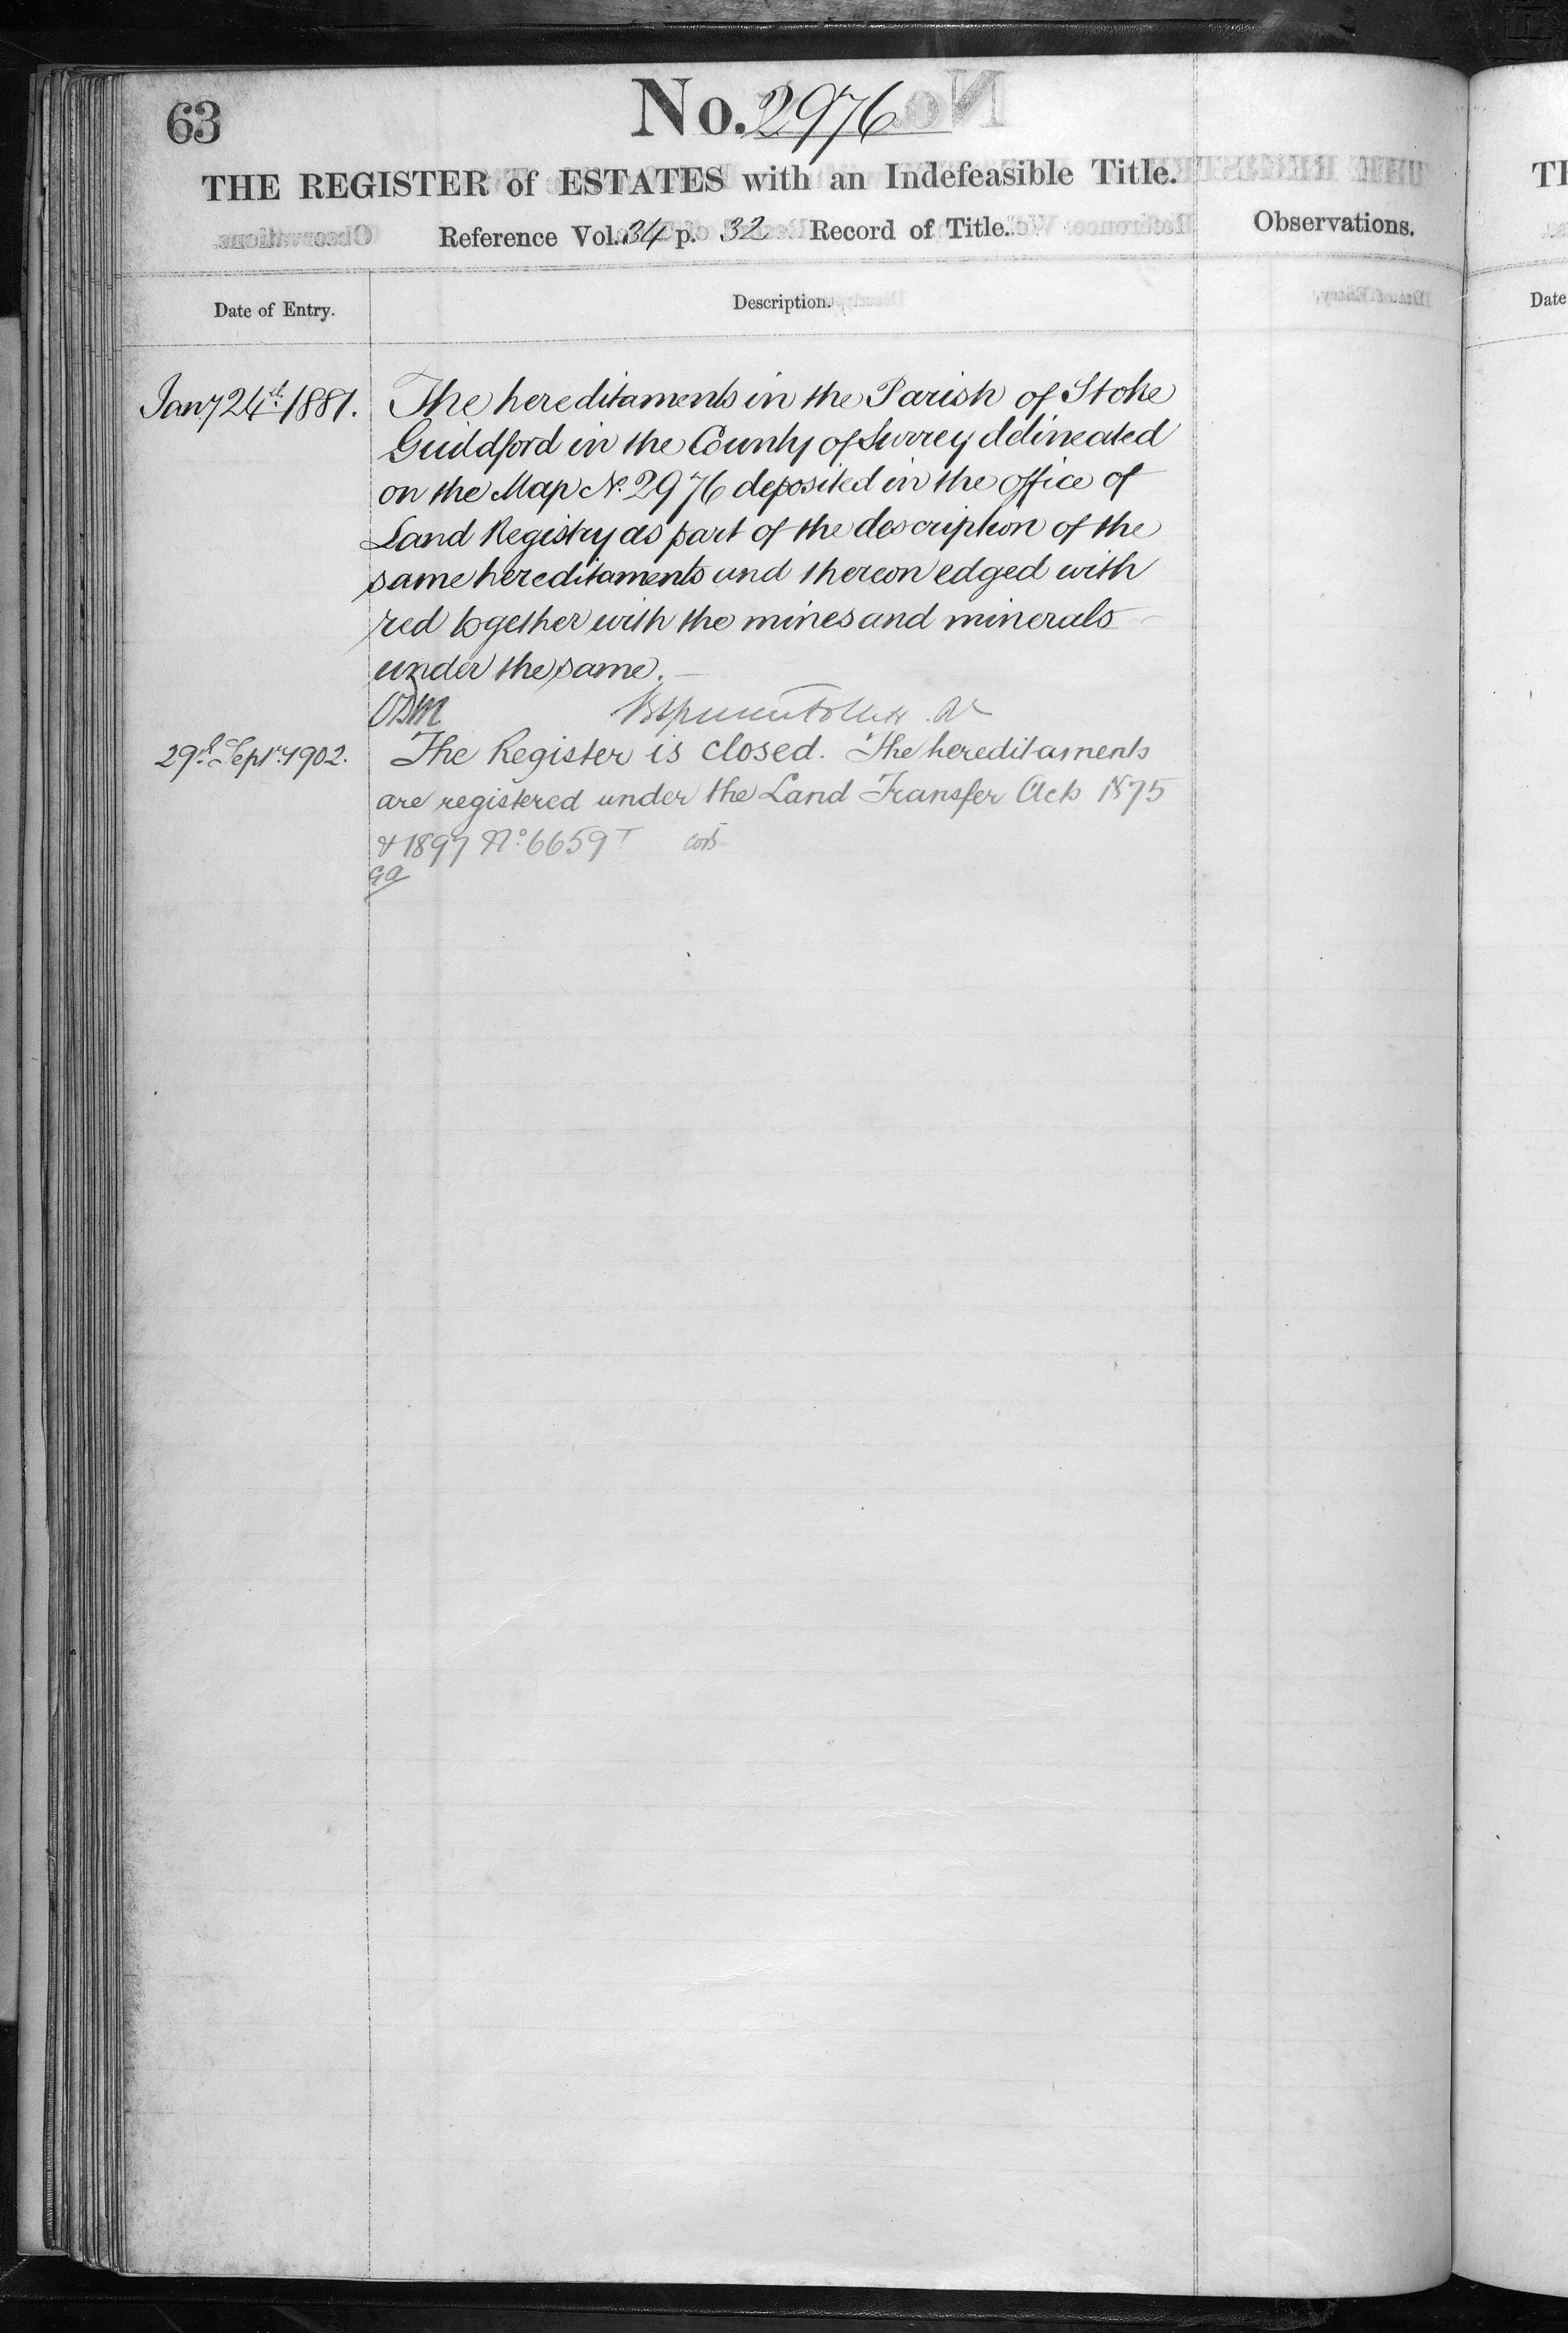 63
No. 2976
THE REGISTER of ESTATES with an Indefeasible Title.
Reference Vol. 34 p. 32 Record of Title.
Observations.
Date of Entry.
Description.
Jany 24th 1881.
The hereditaments in the Parish of Stoke
Guildford in the County of Surrey delineated
on the Map No. 2976 deposited in the office of
Land Registry as part of the description of the
same hereditaments and thereon edged with
red together with the mines and minerals
under the same.
29th Septr. 1902.
The Register is closed. The hereditaments
are registered under the Land Transfer Acts 1875
& 1897 No. 6659
GA
TH
Date